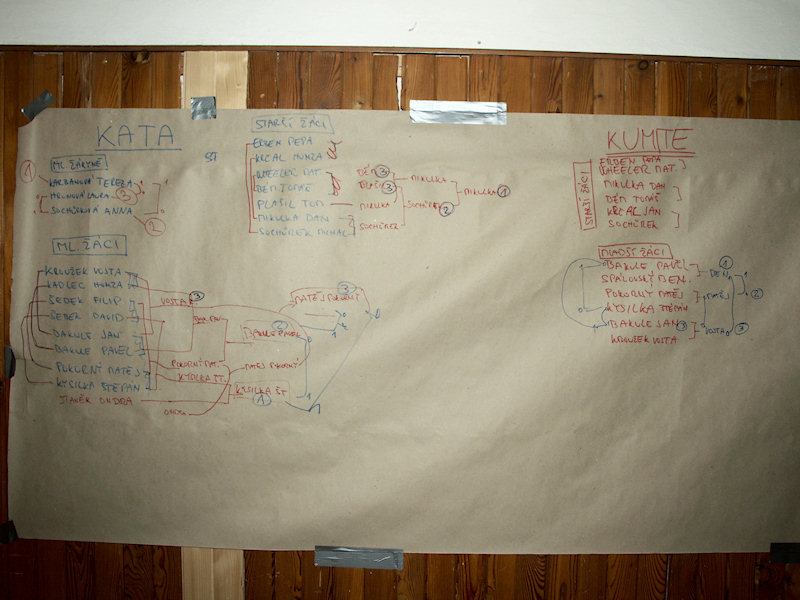 KATA
ML. ŽÁKYNĚ
1
KARBANOVÁ TEREZA
HRONOVÁ LAURA 3
SOCHŮRKOVÁ ANNA
2
ML. ŽÁCI
KROUŽEK VOJTA
KADLEC HONZA
ŠEDEK FILIP
BEBER DAVID
BAKULE JAN
BAKULE PAVEL
POKORNÝ MATĚJ
KYSILKA ŠTĚPÁN
ONDRA
VOJTA 3
BAK. PAV.
POKORNÝ MAT.
KYSILKA ŠT.
ONDRA
2
BAKULE PAVEL
MATĚJ POKORNÝ
KYSILKA ŠT
1
3
MATĚJ POKORNÝ
STARŠÍ ŽÁCI
ERBEN PEPA
KRČAL HONZA
WHEELER MAT.
DĚM TOMÁŠ
PLAŠIL TOM
MIKULKA DAN
SOCHŮREK MICHAL
DĚM 3
PLAŠIL 3
MIKULKA
SOCHŮREK
MIKULKA
SOCHŮREK 2
MIKULKA 1
KUMITE
STARŠÍ ŽÁCI
ERBEN PEPA
WHEELER MAT.
MIKULKA DAN
DĚM TOMÁŠ
KRČAL JAN
SOCHŮREK
MLADŠÍ ŽÁCI
BAKULE PAVEL
SPALOVSKÝ BEN.
POKORNÝ MATĚJ
KYSILKA ŠTĚPÁN
BAKULE JAN 3
KROUŽEK VOJTA
1
BEN.
MATĚJ
VOJTA
2
3